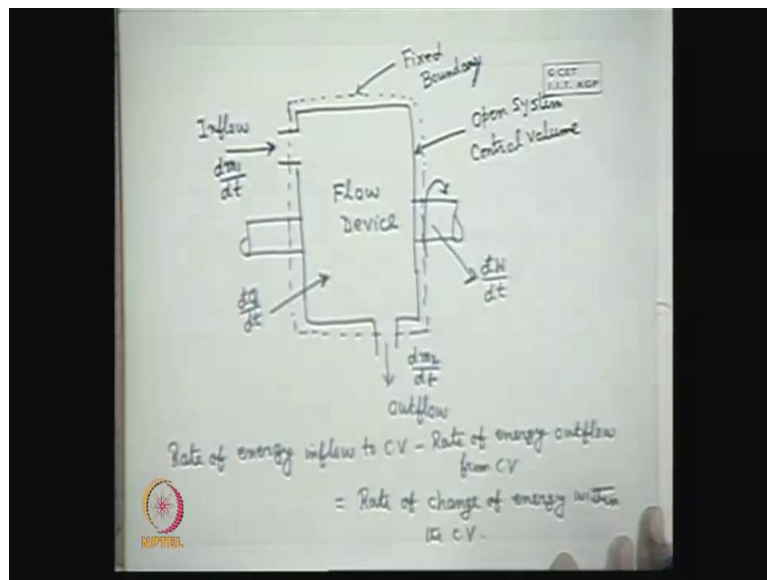 Fixed
Boundary
G CET
I.I.T. KGP
Inflow
dm₁
dt
Open System
Control Volume
Flow
Device
đQ
dt
đW
dt
dm₂
dt
Outflow
Rate of energy inflow to CV - Rate of energy outflow
from CV
= Rate of change of energy within
CV.
NPTEL